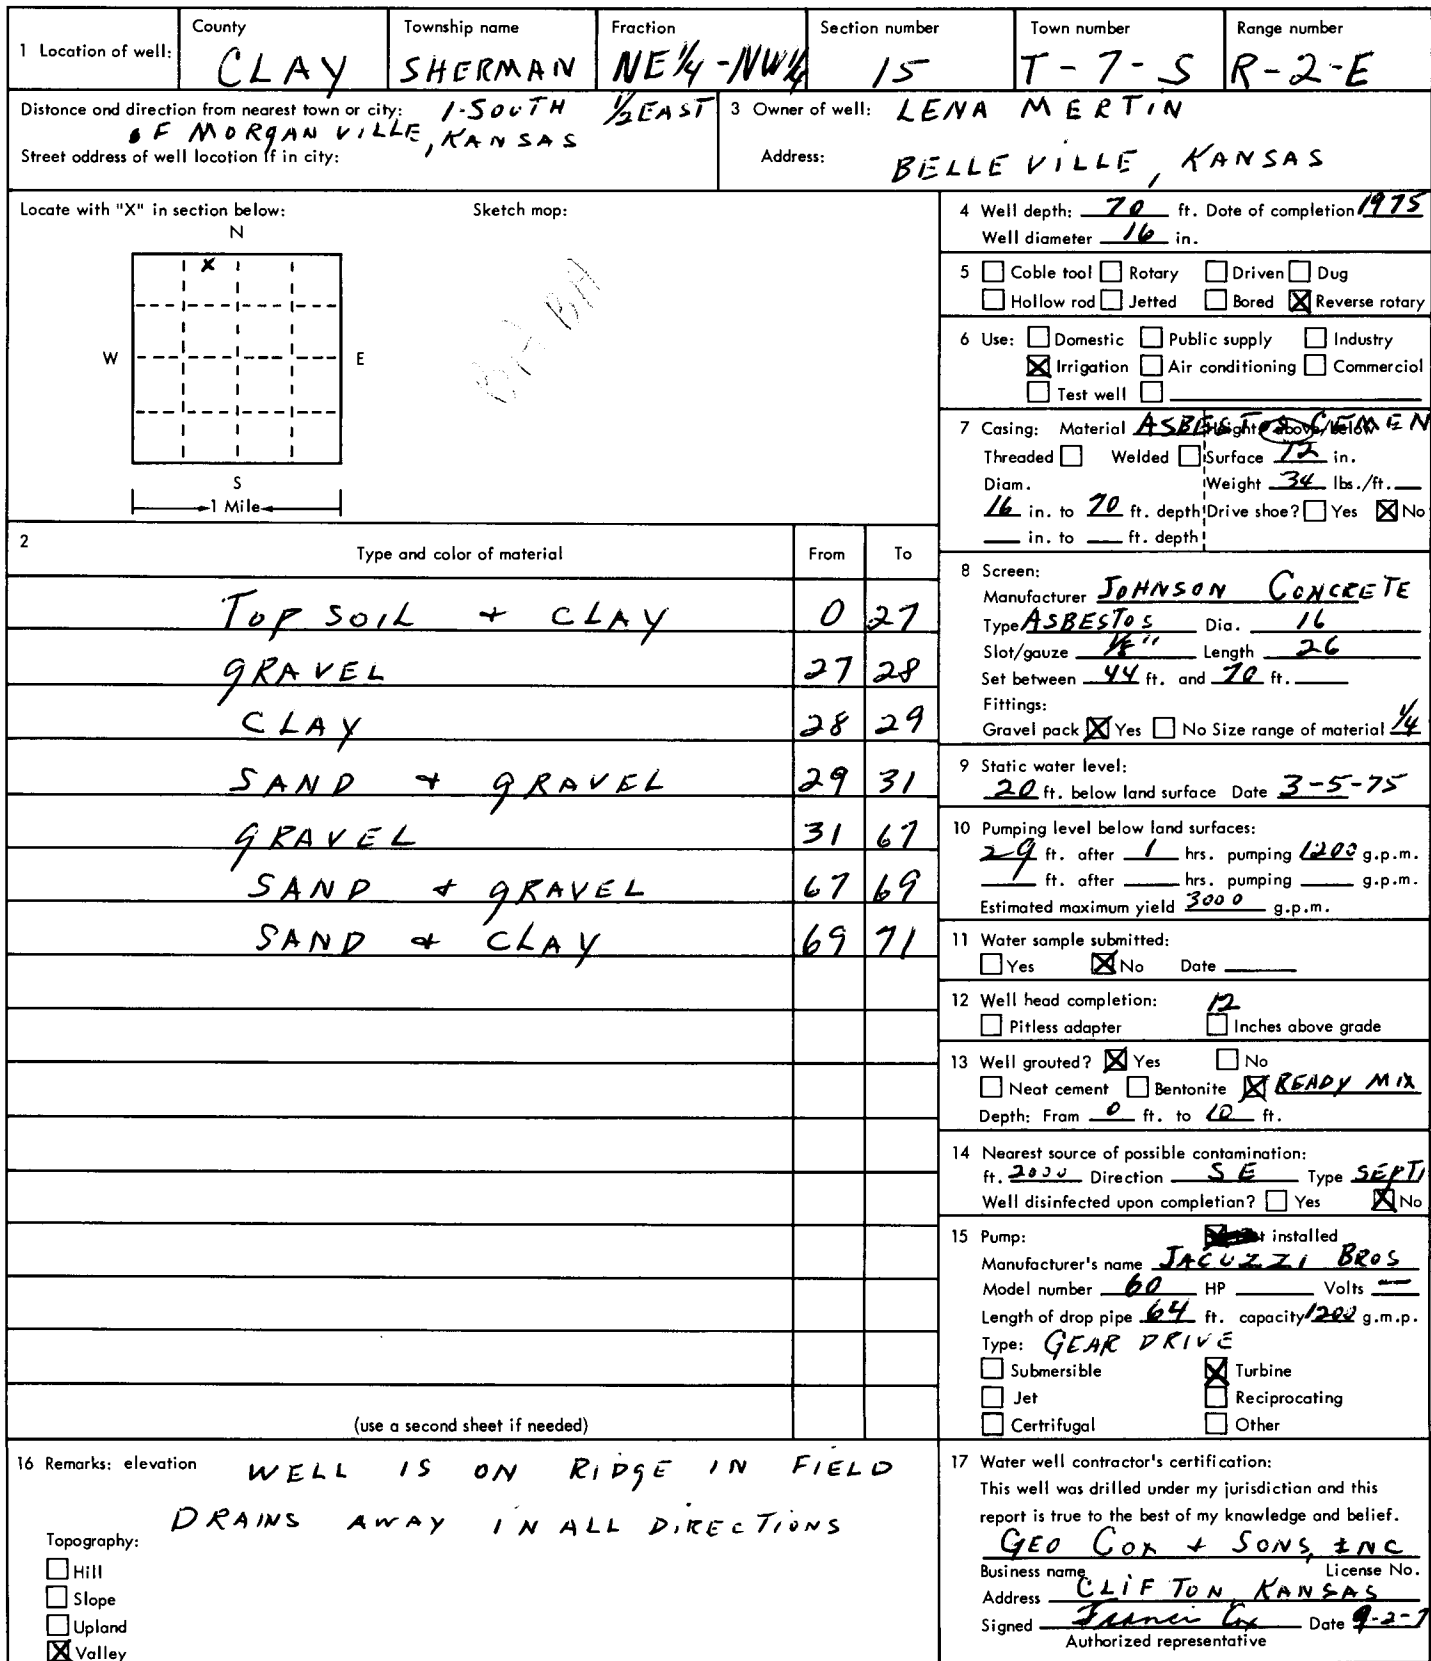 1 Location of well: County CLAY Township name SHERMAN Fraction NE 1/4 - NW 1/4 Section number 15 Town number T-7-S Range number R-2-E
Distonce ond direction from nearest town or city: 1-SOUTH 1/2 EAST
OF MORGANVILLE, KANSAS
Street oddress of well locotion if in city:
3 Owner of well: LENA MERTIN
Address: BELLEVILLE, KANSAS
Locate with "X" in section below: Sketch mop:
N
X
W E
S
1 Mile
2 Type and color of material From To
TOP SOIL + CLAY 0 27
GRAVEL 27 28
CLAY 28 29
SAND + GRAVEL 29 31
GRAVEL 31 67
SAND + GRAVEL 67 69
SAND + CLAY 69 71
(use a second sheet if needed)
4 Well depth: 70 ft. Date of completion 1975
Well diameter 16 in.
5 ☐ Coble tool ☐ Rotary ☐ Driven ☐ Dug
☐ Hollow rod ☐ Jetted ☐ Bored ☒ Reverse rotary
6 Use: ☐ Domestic ☐ Public supply ☐ Industry
☒ Irrigation ☐ Air conditioning ☐ Commerciol
☐ Test well ☐
7 Casing: Material ASBESTOS CEMEN Height: above/below
Threaded ☐ Welded ☐ Surface 12 in.
Diam. Weight 34 lbs./ft.
16 in. to 70 ft. depth Drive shoe? ☐ Yes ☒ No
in. to ft. depth
8 Screen:
Manufacturer JOHNSON CONCRETE
Type ASBESTOS Dia. 16
Slot/gauze 1/8" Length 26
Set between 44 ft. and 70 ft.
Fittings:
Gravel pack ☒ Yes ☐ No Size range of material 1/4
9 Static water level:
20 ft. below land surface Date 3-5-75
10 Pumping level below land surfaces:
29 ft. after 1 hrs. pumping 1200 g.p.m.
ft. after hrs. pumping g.p.m.
Estimated maximum yield 3000 g.p.m.
11 Water sample submitted:
☐ Yes ☒ No Date
12 Well head completion: 12
☐ Pitless adapter ☐ Inches above grade
13 Well grouted? ☒ Yes ☐ No
☐ Neat cement ☐ Bentonite ☒ READY MIX
Depth: Fram 0 ft. to 10 ft.
14 Nearest source of possible contamination:
ft. 2000 Direction SE Type SEPTI
Well disinfected upon completian? ☐ Yes ☒ No
15 Pump: installed
Manufacturer's name JACUZZI BROS
Model number 60 HP Volts —
Length of drop pipe 64 ft. capacity 1200 g.m.p.
Type: GEAR DRIVE
☐ Submersible ☒ Turbine
☐ Jet ☐ Reciprocating
☐ Certrifugal ☐ Other
16 Remarks: elevation WELL IS ON RIDGE IN FIELD
DRAINS AWAY IN ALL DIRECTIONS
Topography:
☐ Hill
☐ Slope
☐ Upland
☒ Valley
17 Water well contractor's certification:
This well was drilled under my jurisdiction and this
report is true to the best of my knowledge and belief.
GEO COX + SONS, INC
Business name License No.
Address CLIFTON, KANSAS
Signed Francis Cox Date 9-2-7
Authorized representative